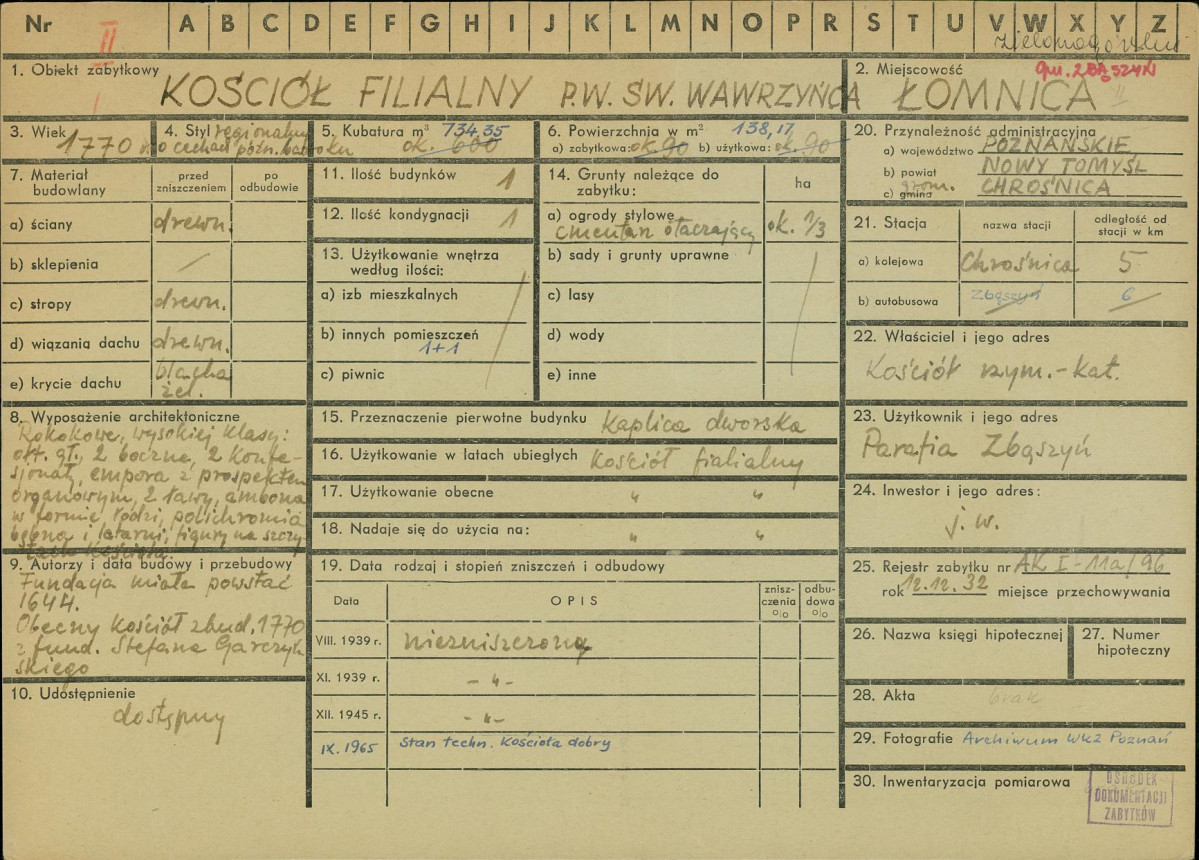 Nr II A B C D E F G H I J K L M N O P R S T U V W X Y Z
zielonogórskie
1. Obiekt zabytkowy
KOŚCIÓŁ FILIALNY P.W. ŚW. WAWRZYŃCA
2. Miejscowość
gm. ZBĄSZYŃ
ŁOMNICA
3. Wiek
1770 r.
4. Styl regionalny
o cechach późn. baroku
5. Kubatura m³ 734,35
ok. 600
6. Powierzchnia w m² 138,17
a) zabytkowa: ok. 90 b) użytkowa: ok. 90
7. Materiał budowlany
przed zniszczeniem
po odbudowie
a) ściany drewn.
b) sklepienia /
c) stropy drewn.
d) wiązania dachu drewn.
e) krycie dachu blacha
żel.
8. Wyposażenie architektoniczne
Rokokowe, wysokiej klasy:
ołt. gł., 2 boczne, 2 konfe-
sjonały, empora z prospektem
organowym, 2 ławy, ambona
w formie łodzi, polichromia
bębna i latarni, figury na szczy-
tach kościoła.
9. Autorzy i data budowy i przebudowy
Fundacja miała powstać
1644.
Obecny kościół zbud. 1770
z fund. Stefana Garczyń-
skiego
10. Udostępnienie
dostępny
11. Ilość budynków 1
12. Ilość kondygnacji 1
13. Użytkowanie wnętrza
według ilości:
a) izb mieszkalnych
b) innych pomieszczeń
1+1
c) piwnic
14. Grunty należące do
zabytku:
ha
a) ogrody stylowe
cmentarz otaczający ok. 1/3
b) sady i grunty uprawne
c) lasy
d) wody
e) inne
15. Przeznaczenie pierwotne budynku kaplica dworska
16. Użytkowanie w latach ubiegłych kościół filialny
17. Użytkowanie obecne " "
18. Nadaje się do użycia na: " "
19. Data rodzaj i stopień zniszczeń i odbudowy
Data
OPIS
znisz-
czenia
o/o
odbu-
dowa
o/o
VIII. 1939 r. niezniszczony
XI. 1939 r. - " -
XII. 1945 r. - " -
IX. 1965 Stan techn. kościoła dobry
20. Przynależność administracyjna
a) województwo POZNAŃSKIE
b) powiat NOWY TOMYŚL
c) gmina grom. CHROŚNICA
21. Stacja
nazwa stacji
odległość od
stacji w km
a) kolejowa Chrośnica 5
b) autobusowa Zbąszyń 6
22. Właściciel i jego adres
Kościół rzym.-kat.
23. Użytkownik i jego adres
Parafia Zbąszyń
24. Inwestor i jego adres:
j. w.
25. Rejestr zabytku nr AK I-11a/96
rok 12.12.32 miejsce przechowywania
26. Nazwa księgi hipotecznej
27. Numer
hipoteczny
28. Akta brak
29. Fotografie Archiwum WKZ Poznań
30. Inwentaryzacja pomiarowa
OŚRODEK
DOKUMENTACJI
ZABYTKÓW